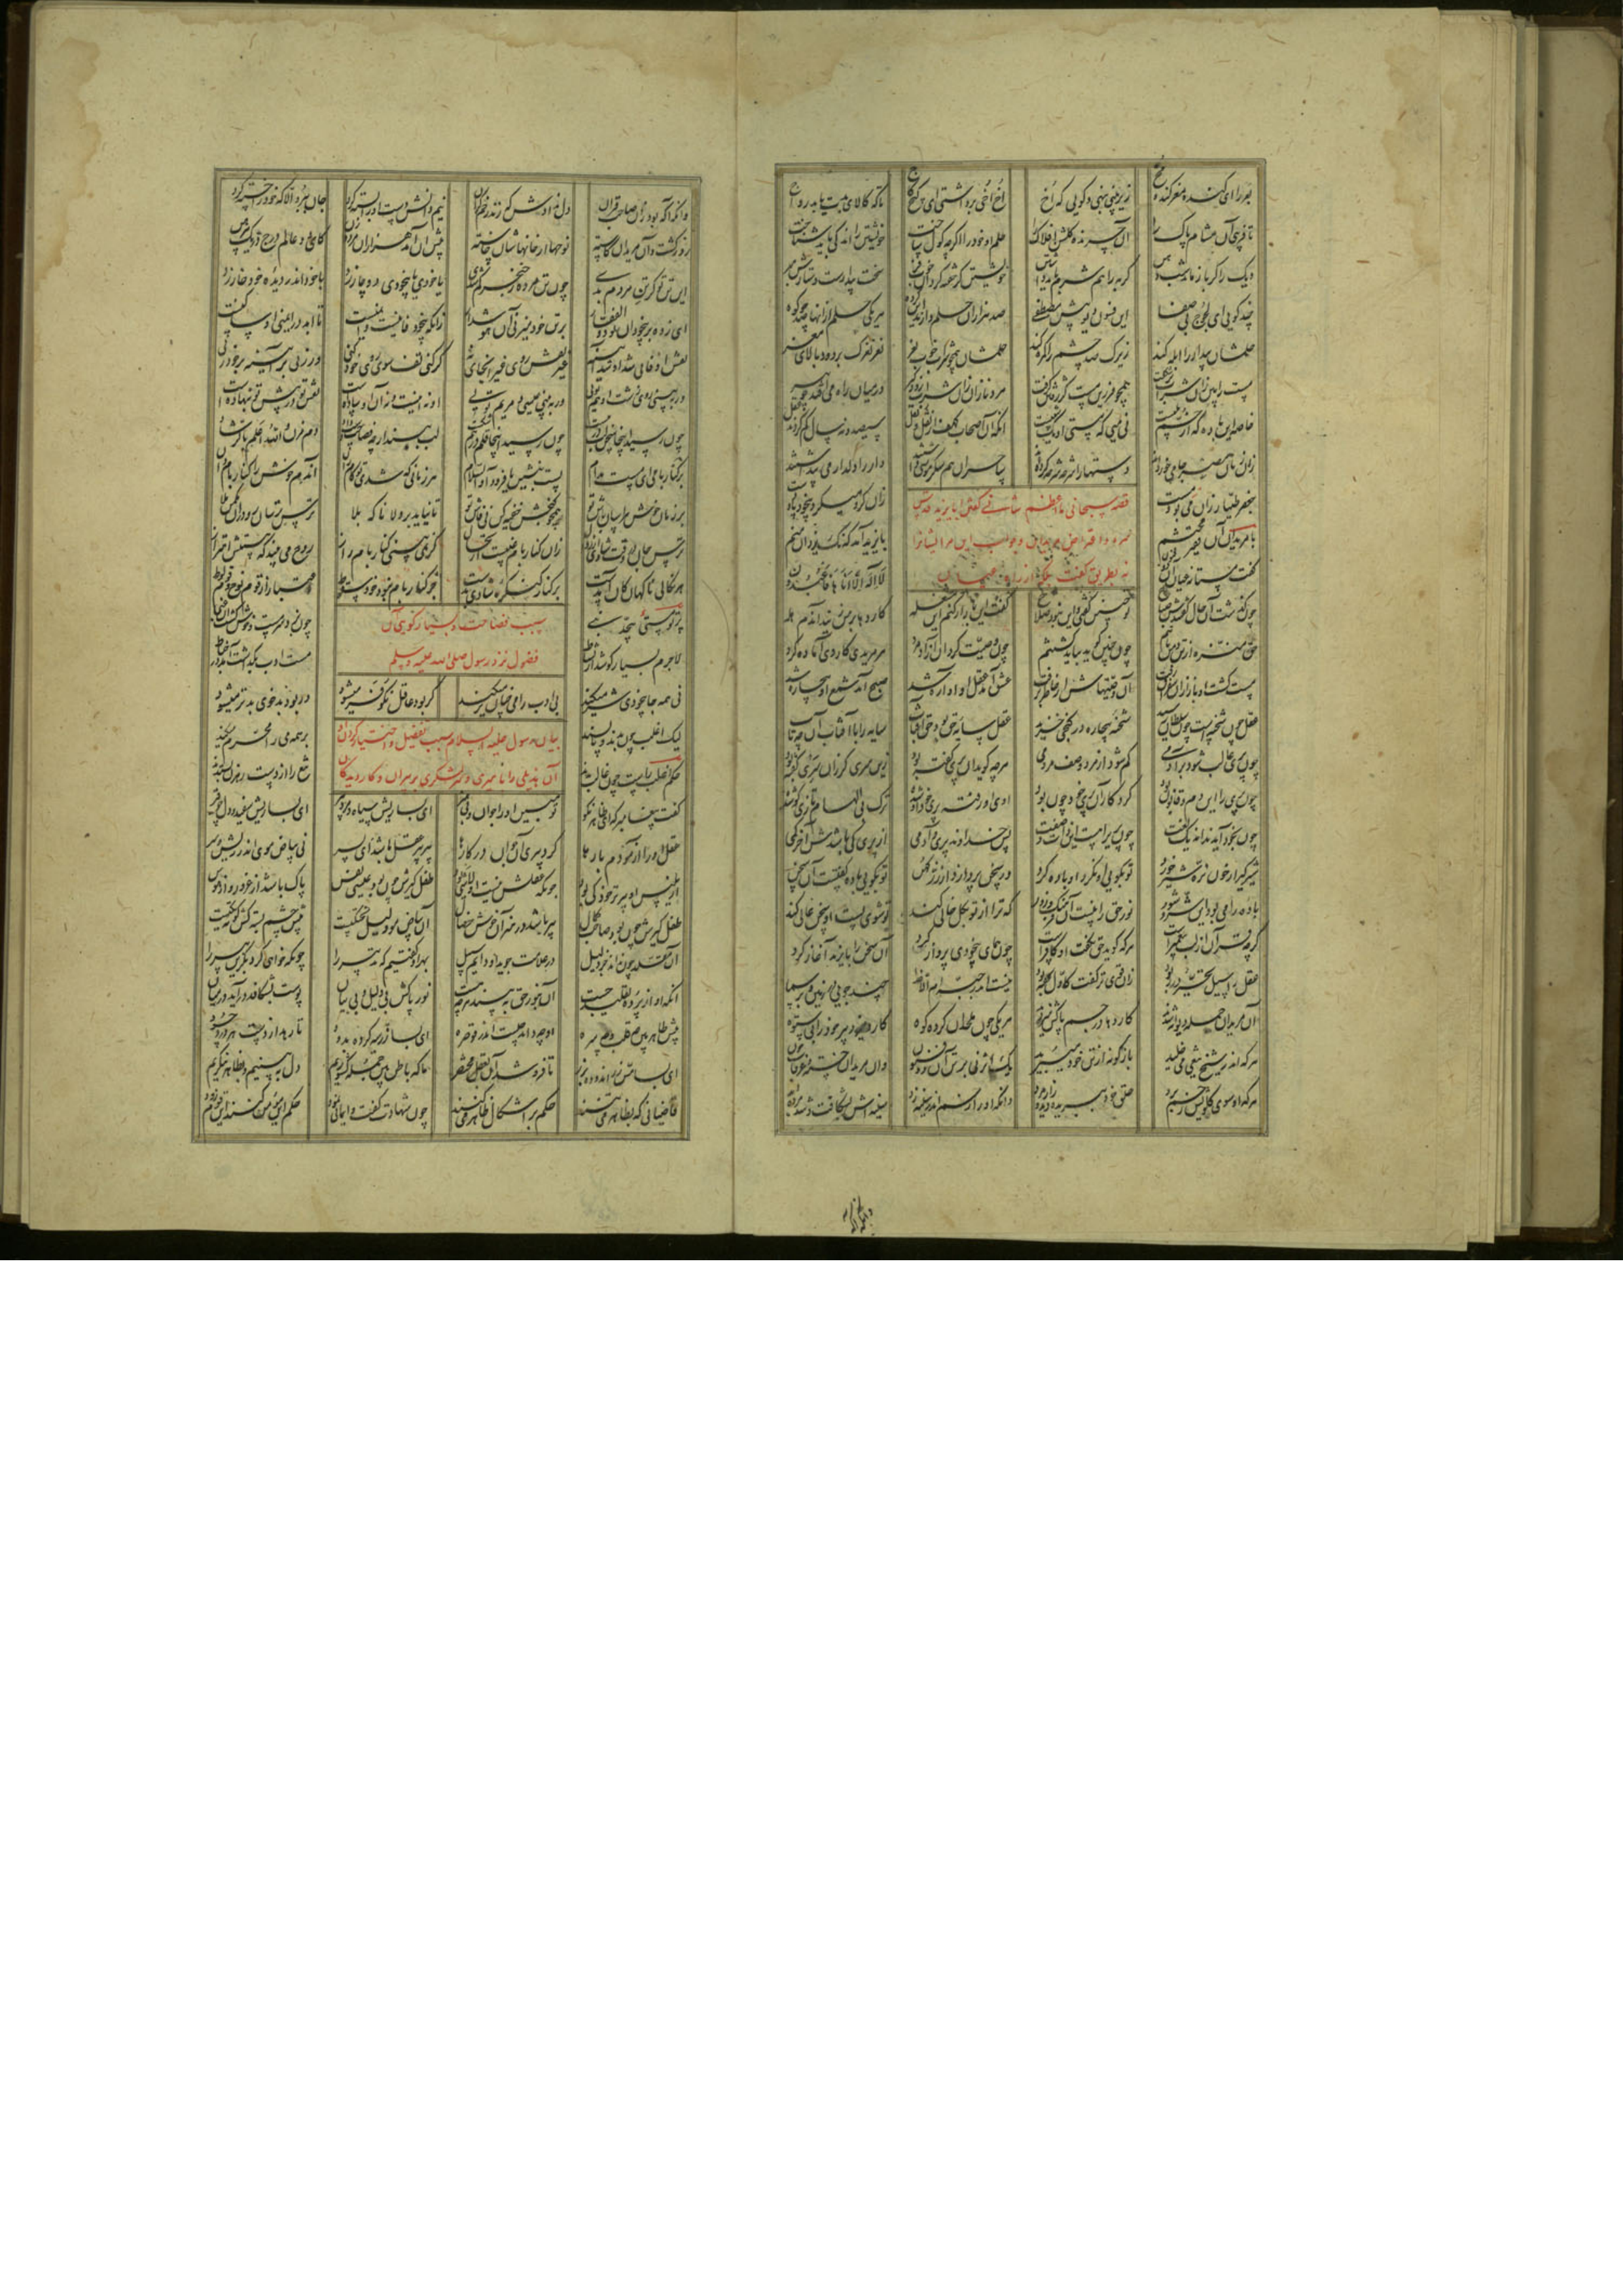 بو رزای گنده مغز گنده مخ زیر بینی بنهی و گویی که اخ اخ اخی برداشتی ای گیج گاج تا که کالای بدت یابد رواج
تا فریبی آن مشام پاک را آن چرنده گلشن افلاک را حلم او خود را اگرچه گول ساخت خویشتن را اندکی باید شناخت
دیک را گر باز ماند امشب دهن گربه را هم شرم باید داشتن خویشتن گر خفته کرد آن خوب فر سخت بیدارست دستارش مبر
چند گویی ای لجوج بی صفا این فسون دیو پیش مصطفی صد هزاران حلم دارند این گروه هر یکی حلم از آنها چند کوه
حلمشان بیدار را ابله کند زیرک صد چشم را گمره کند حلمشان همچون شراب خوب نغز نغز نغزک بر رود بالای مغز
مست را بین زان شراب پرشگفت همچو فرزین مست کژ رفتن گرفت مرد برنا زان شراب زودگیر در میان راه می افتد چو پیر
خاصه این باده که از خم بلیست نی میی که مستی او یکشبیست انکه آن اصحاب کهف از نقل و نقل سیصد و نه سال گم کردند عقل
زان زنان مصر جامی خورده اند دستها را شرحه شرحه کرده اند ساحران هم سکر موسی داشتند دار را دلدار می پنداشتند
جعفر طیار زان می بود مست زان گرو میکرد بیخود پا و دست
قصه سبحانی ما اعظم شانی گفتن بایزید قدس
سره و اعتراض مریدان و جواب این مر ایشانرا
نه بطریق گفت بلکه از راه عیان
با مریدان آن فقیر محتشم بایزید آمد که نک یزدان منم
گفت مستانه عیان آن ذوفنون لا اله الا انا ها فاعبدون
چون گذشت آن حال گفتندش صباح تو چنین گفتی و این نبود صلاح گفت این بار ار کنم این مشغله کاردها بر من زنید آندم هله
حق منزه از تن و من با تنم چون چنین گویم بباید کشتنم چون وصیت کرد آن آزادمرد هر مریدی کاردی آماده کرد
مست گشت او باز ازان سغراق زفت آن وصیتهاش از خاطر برفت عشق آمد عقل او آواره شد صبح آمد شمع او بیچاره شد
عقل چون شحنه است چون سلطان رسید شحنه بیچاره در کنجی خزید عقل سایه حق بود حق آفتاب سایه را با آفتاب آن چه تاب
چون پری غالب شود بر آدمی گم شود از مرد وصف مردمی هرچه گوید آن پری گفته بود زین سری گر زان سری گفته بود
چون پری را این دم و قانون بود کردگار آن پری خود چون بود اوی او رفته پری خود او شده ترک بی الهام تازی گو شده
چون بخود آید نداند یک لغت چون پری را هست این ذات و صفت پس خداوند پری و آدمی از پری کی باشدش آخر کمی
شیرگیر ار خون نره شیر خورد تو بگویی او نکرد او باده کرد ور سخن پردازد از زر کهن تو بگویی باده گفتست آن سخن
باده را می بود این شر و شور نور حق را نیست آن فرهنگ و زور که ترا از تو بکل خالی کند تو شوی پست او سخن عالی کند
گرچه قرآن از لب پیغمبرست هرکه گوید حق نگفت او کافرست چون همای بیخودی پرواز کرد آن سخن را بایزید آغاز کرد
عقل را سیل تحیر در ربود زان قوی تر گفت کاول گفته بود نیست اندر جبه ام الا خدا چند جویی بر زمین و بر سما
آن مریدان جمله دیوانه شدند کاردها در جسم پاکش میزدند هر یکی چون ملحدان گرده کوه کارد میزد پیر خود را بی ستوه
هرکه اندر شیخ تیغی می خلید بازگونه از تن خود میدرید یک اثر نی بر تن آن ذوفنون وان مریدان خسته و غرقاب خون
هرکه او سوی گلویش زخم برد حلق خود ببریده دید و زار مرد وانکه او را زخم اندر سینه زد سینه اش بشکافت و شد مرده ابد
وانکه اگه
وانکه اگه بود زان صاحب قران دل ندادش که زند زخم گران نیم دانش دست او را بسته کرد جان ببرد الا که خود را خسته کرد
روز گشت و آن مریدان کاسته نوحها از خانهاشان خاسته پیش آن آمد هزاران مرد و زن کای دو عالم درج در یک پیرهن
این تن تو گر تن مردم بدی چون تن مردم ز خنجر گم شدی با خودی با بیخودی دو چار زد با خود اندر دیده خود خار زد
ای زده بر بیخودان تو ذوالفقار بر تن خود میزنی آن هوش دار زانکه بیخود فانیست و ایمنست تا ابد در ایمنی او ساکنست
نقش او فانی شد او شد آینه غیر نقش روی غیر آنجای نه گر کنی تف سوی روی خود کنی ور زنی بر آینه بر خود زنی
ور ببینی روی زشت او هم تویی ور ببینی عیسی و مریم تویی او نه اینست و نه آن او ساده است نقش تو در پیش تو بنهاده است
چون رسید اینجا سخن لب در ببست چون رسید اینجا قلم درهم شکست لب ببند ار چه فصاحت دست داد دم مزن والله اعلم بالرشاد
بر کنار بامی ای مست مدام پست بنشین یا فرود آ والسلام هر زمانی که شدی تو کامران آن دم خوش را کنار بام دان
بر زمان خوش هراسان باش تو همچو گنجش خفیه کن نی فاش تو تا نیاید بر ولا ناگه بلا ترس ترسان رو دران مکمن هلا
ترس جان در وقت شادی از زوال زان کنار بام غیبست ارتحال گر نمی بینی کنار بام راز روح می بیند که هستش اهتزاز
هر نکالی ناگهان کان آمدست بر کنار کنگره شادی بدست جز کنار بام خود نبود سقوط اعتبار از قوم نوح و قوم لوط
سبب فصاحت و بسیار گویی آن
فضول نزد رسول صلی الله علیه و سلم
پرتو مستی بیحد نبی چون بزد هم مست و خوش گشت آن غبی
لاجرم بسیار گو شد از نشاط مست ادب بگذاشت آمد در خباط
نی همه جا بیخودی شر میکند بی ادب را می چنانتر میکند گر بود عاقل نکو فر میشود ور بود بدخوی بدتر میشود
لیک اغلب چون بدند و ناپسند بر همه می را محرم کرده اند
بیان رسول علیه السلام سبب تفضیل و اختیار کردن او
آن هذیلی را بامیری و سرلشکری بر پیران و کاردیدگان
حکم اغلب راست چون غالب بدند تیغ را از دست رهزن بستدند
گفت پیغامبر که ای ظاهرنگر تو مبین او را جوان و بی هنر ای بسا ریش سیاه و مرد پیر ای بسا ریش سفید و دل چو قیر
عقل او را آزمودم بارها کرد پیری آن جوان در کارها پیر پیر عقل باشد ای پسر نی بیاض موی اندر ریش و سر
از بلیس او پیرتر خود کی بود چونکه عقلش نیست او لاشی بود طفل گیرش چون بود عیسی نفس پاک باشد از غرور و از هوس
طفل گیرش چون بود صاحب کمال آن بیاض مو دلیل پختگیست پیش چشم بسته کش کوته تگیست
آن مقلد چون نداند جز دلیل در علامت جوید او دایم سبیل بهر او گفتیم که تدبیر را چونکه خواهی کرد بگزین پیر را
انکه او از پرده تقلید جست او بنور حق ببیند هرچه هست نور پاکش بی دلیل و بی بیان پوست بشکافد در آید در میان
پیش ظاهربین چه قلب و چه سره او چه داند چیست اندر قوصره ای بسا زر سیه کرده بدود تا رهد از دست هر دزدی حسود
ای بسا مس زر اندوده بزر تا فروشد آن بعقل مختصر ما که باطن بین جمله کشوریم دل ببینیم و بظاهر ننگریم
قاضیانی که بظاهر می تنند حکم بر اشکال ظاهر میکنند چون شهادت گفت و ایمانی نمود حکم او مومن کنند این قوم زود